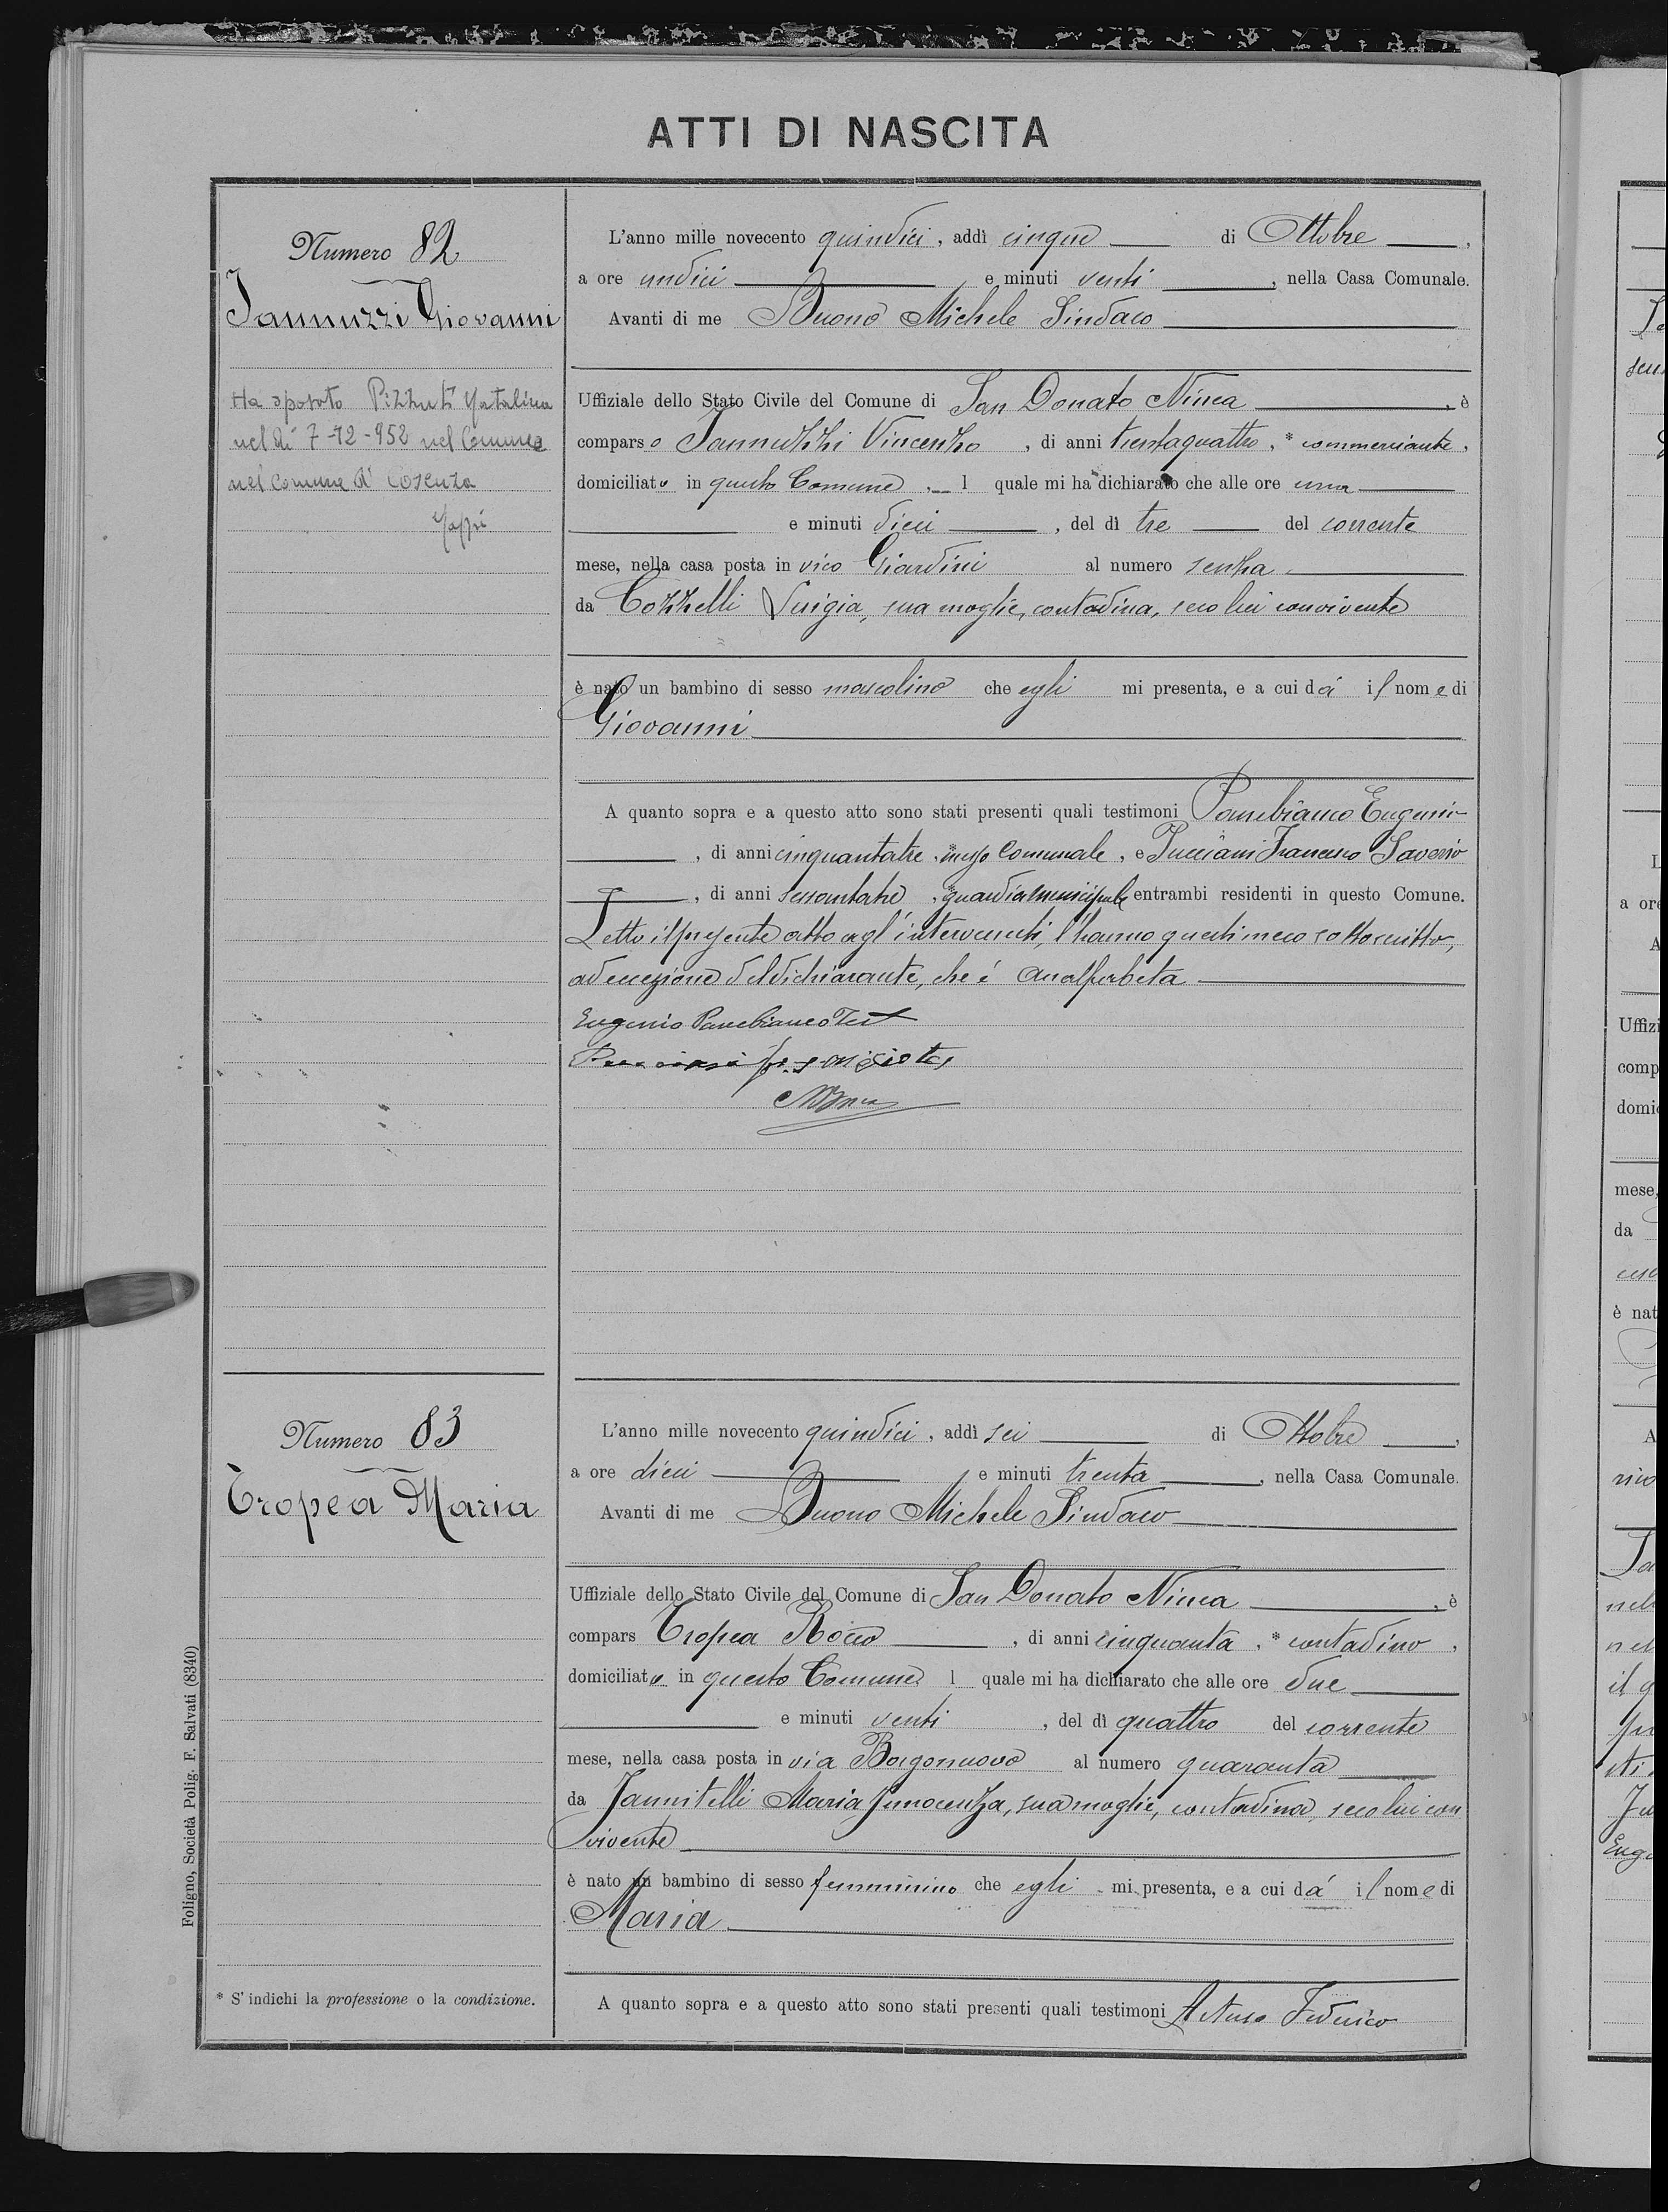 ATTI DI NASCITA
Numero 82
Iannuzzi Giovanni
Ha sposato Pizzuti Natalina
nel dì 7-12-952 nel Comune
nel Comune di Cosenza
L'anno mille novecento quindici, addì cinque di Ottobre,
a ore undici e minuti venti, nella Casa Comunale.
Avanti di me Buono Michele Sindaco
Uffiziale dello Stato Civile del Comune di San Donato Ninea, è
comparso Iannuzzi Vincenzo, di anni trentaquattro, * commerciante,
domiciliato in questo Comune, l quale mi ha dichiarato che alle ore una
e minuti dieci, del dì tre del corrente
mese, nella casa posta in vico Giardini al numero senza
da Cozzelli Luigia, sua moglie, contadina, seco lui convivente
è nato un bambino di sesso mascolino che egli mi presenta, e a cui dá il nome di
Giovanni
A quanto sopra e a questo atto sono stati presenti quali testimoni Panebianco Eugenio
, di anni cinquantatre, * messo Comunale, e Pucciani Francesco Saverio
, di anni sessantatre, * guardia municipale entrambi residenti in questo Comune.
Letto il presente atto agl'intervenuti, l'hanno questi meco sottoscritto,
ad eccezione del dichiarante, che é analfabeta
Eugenio Panebianco Test
Numero 83
Tropea Maria
L'anno mille novecento quindici, addì sei di Ottobre,
a ore dieci e minuti trenta, nella Casa Comunale.
Avanti di me Buono Michele Sindaco
Uffiziale dello Stato Civile del Comune di San Donato Ninea, è
compars Tropea Rocco, di anni cinquanta, * contadino,
domiciliato in questo Comune l quale mi ha dichiarato che alle ore due
e minuti venti, del dì quattro del corrente
mese, nella casa posta in via Borgonuovo al numero quaranta
da Jannitelli Maria Innocenza, sua moglie, contadina, seco lui con
vivente
è nato un bambino di sesso femminino che egli mi presenta, e a cui dá il nome di
Maria
A quanto sopra e a questo atto sono stati presenti quali testimoni Artuso Federico
* S'indichi la professione o la condizione.
Foligno, Società Polig. F. Salvati (8340)